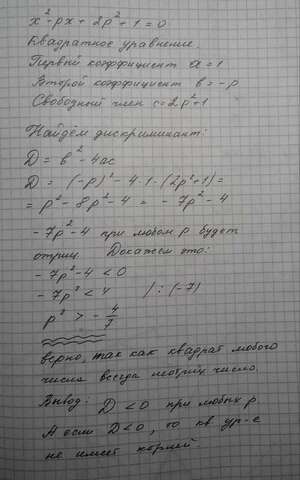 x² - px + 2p² + 1 = 0
Квадратное уравнение.
Первый коэффициент a = 1
Второй коэффициент b = -p
Свободный член c = 2p² + 1
Найдём дискриминант:
D = b² - 4ac
D = (-p)² - 4·1·(2p²+1) =
= p² - 8p² - 4 = -7p² - 4
-7p² - 4 при любом p будет
отриц. Докажем это:
-7p² - 4 < 0
-7p² < 4 /:(-7)
p² > -4/7
верно, так как квадрат любого
числа всегда неотриц. число.
Вывод: D < 0 при любых p
А если D < 0, то кв. ур-е
не имеет корней.